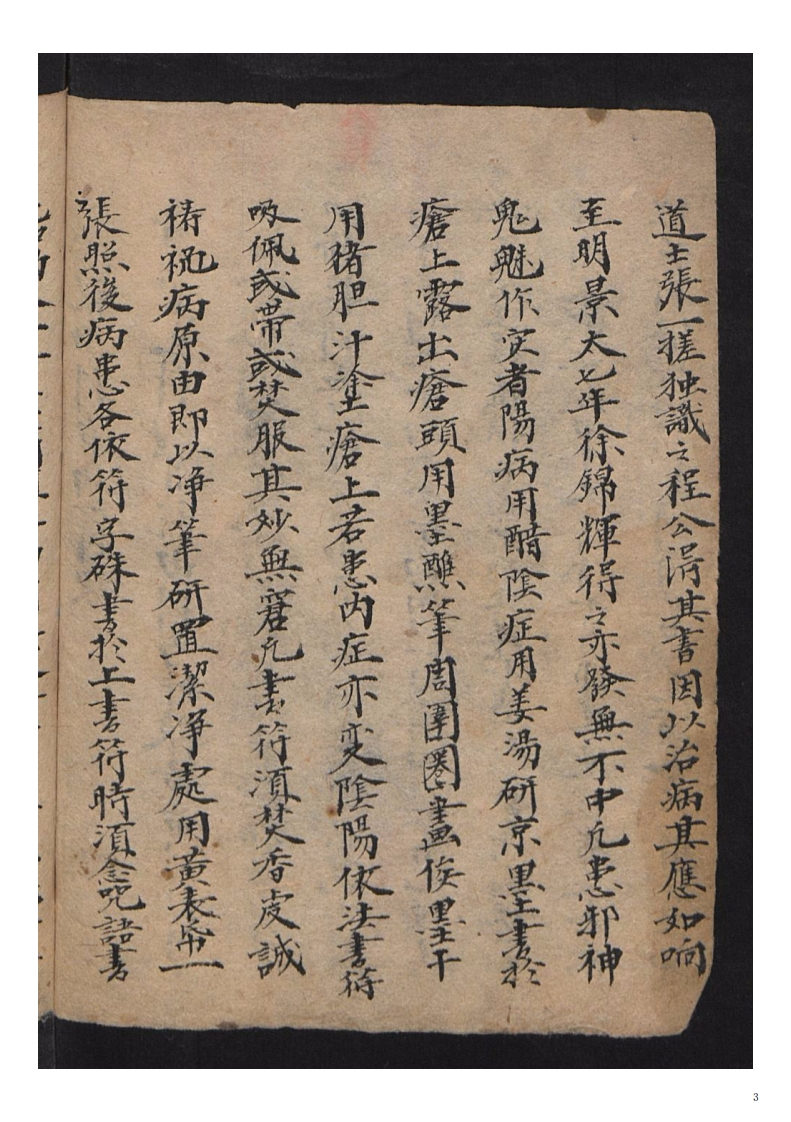 道士張一搓独識之程公淂其書因以治病其應如响
至明景太七年徐錦輝得之亦發無不中凡患邪神
鬼魅作灾者陽病用醋陰症用姜湯研京墨書於
瘡上露出瘡頭用墨醮筆周圍圈畫俟墨干
用猪胆汁塗瘡上若患内症亦变陰陽依法書符
吸佩或帶或焚服其妙無窘凢書符湏焚香虔誠
祷祝病原由即以净筆研置潔净處用黄表帋一
張照後病患各依符字硃書於上書符時湏念咒語書
3